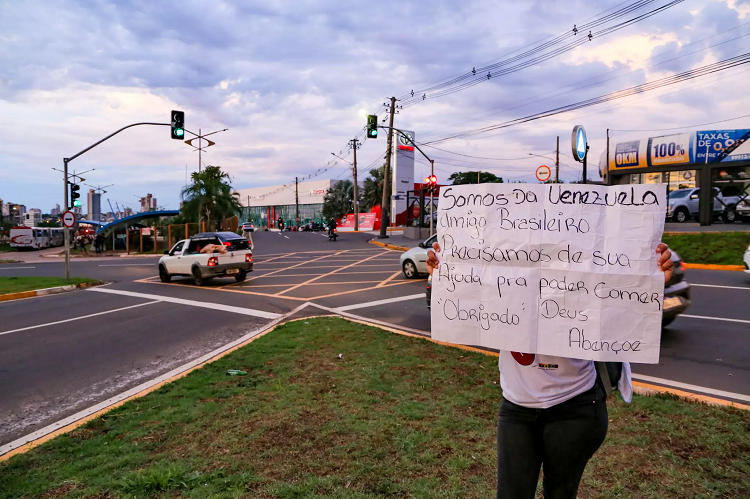 Somos Da Venezuela
Amigo Brasileiro
Precisamos de sua
Ajuda pra poder Comer
"Obrigado" Deus
Abençoe
TOYOTA
OKM
100%
TAXAS
DE 0,
ENTRE